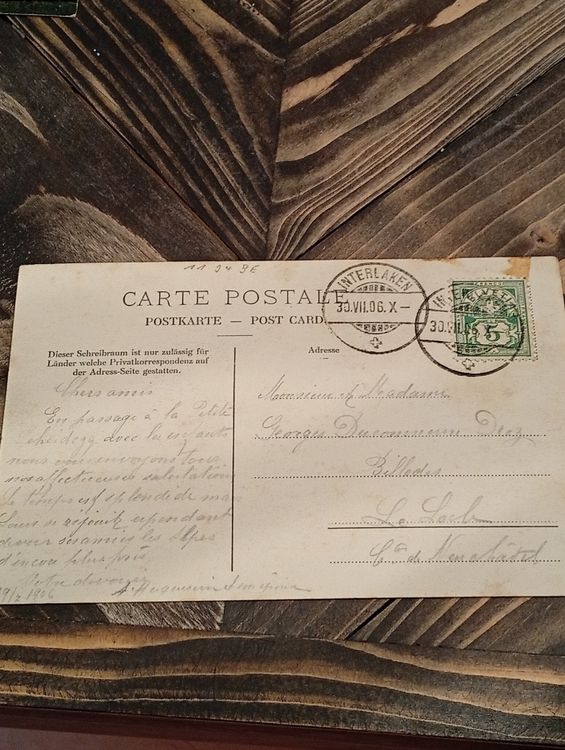 11 94 9E
CARTE POSTALE
POSTKARTE — POST CARD
INTERLAKEN
30.VII.06.X–
INTERLAKEN
30.VII.06
5
Dieser Schreibraum ist nur zulässig für
Länder welche Privatkorrespondenz auf
der Adress-Seite gestatten.
Adresse
Chers amis
En passage à la Petite
Scheidegg avec les enfants
nous vous envoyons tous
nos affectueuses salutations
le temps est splendide
se réjouit cependant
les Alpes
d'encore plus près
Votre dévoué
29/7 1906
Monsieur & Madame
Georges Ducommun Droz
Billodes
Le Locle
Ct. de Neuchâtel